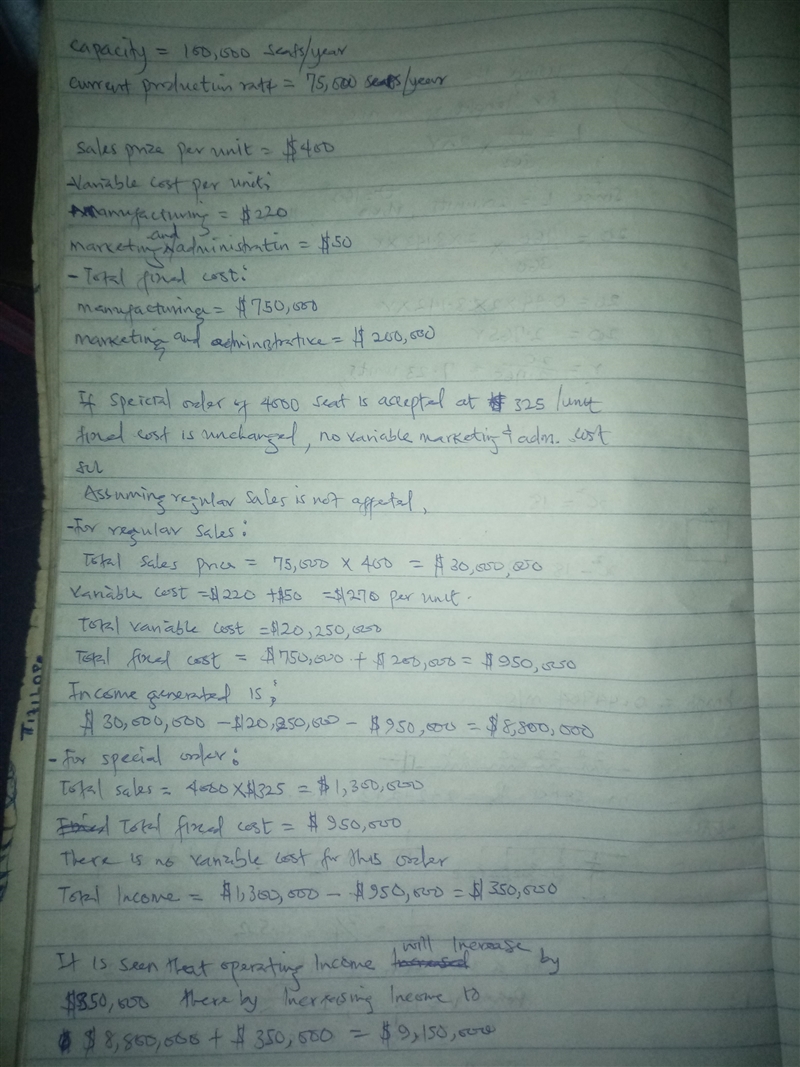 capacity = 100,000 seats/year
current production rate = 75,000 seats/year
Sales price per unit = $400
-Variable cost per unit:
manufacturing = $220
marketing and administratin = $50
- Total fixed cost:
manufacturing = $750,000
marketing and administrative = $200,000
If speicral order of 4000 seat is accepted at $325 /unit
fixed cost is unchanged, no variable marketing & adm. cost
Assuming regular sales is not affetal,
-For regular sales:
Total sales price = 75,000 X 400 = $30,000,000
Variable cost = $220 + $50 = $270 per unit.
Total variable cost = $20,250,000
Total fixed cost = $750,000 + $200,000 = $950,000
Income generated is;
$30,000,000 - $20,250,000 - $950,000 = $8,800,000
- For special order:
Total sales = 4000 X $325 = $1,300,000
Total fixed cost = $950,000
There is no variable cost for this order
Total Income = $1,300,000 - $950,000 = $350,000
It is seen that operating Income will Increase by
$350,000 there by Increasing Income to
$8,800,000 + $350,000 = $9,150,000